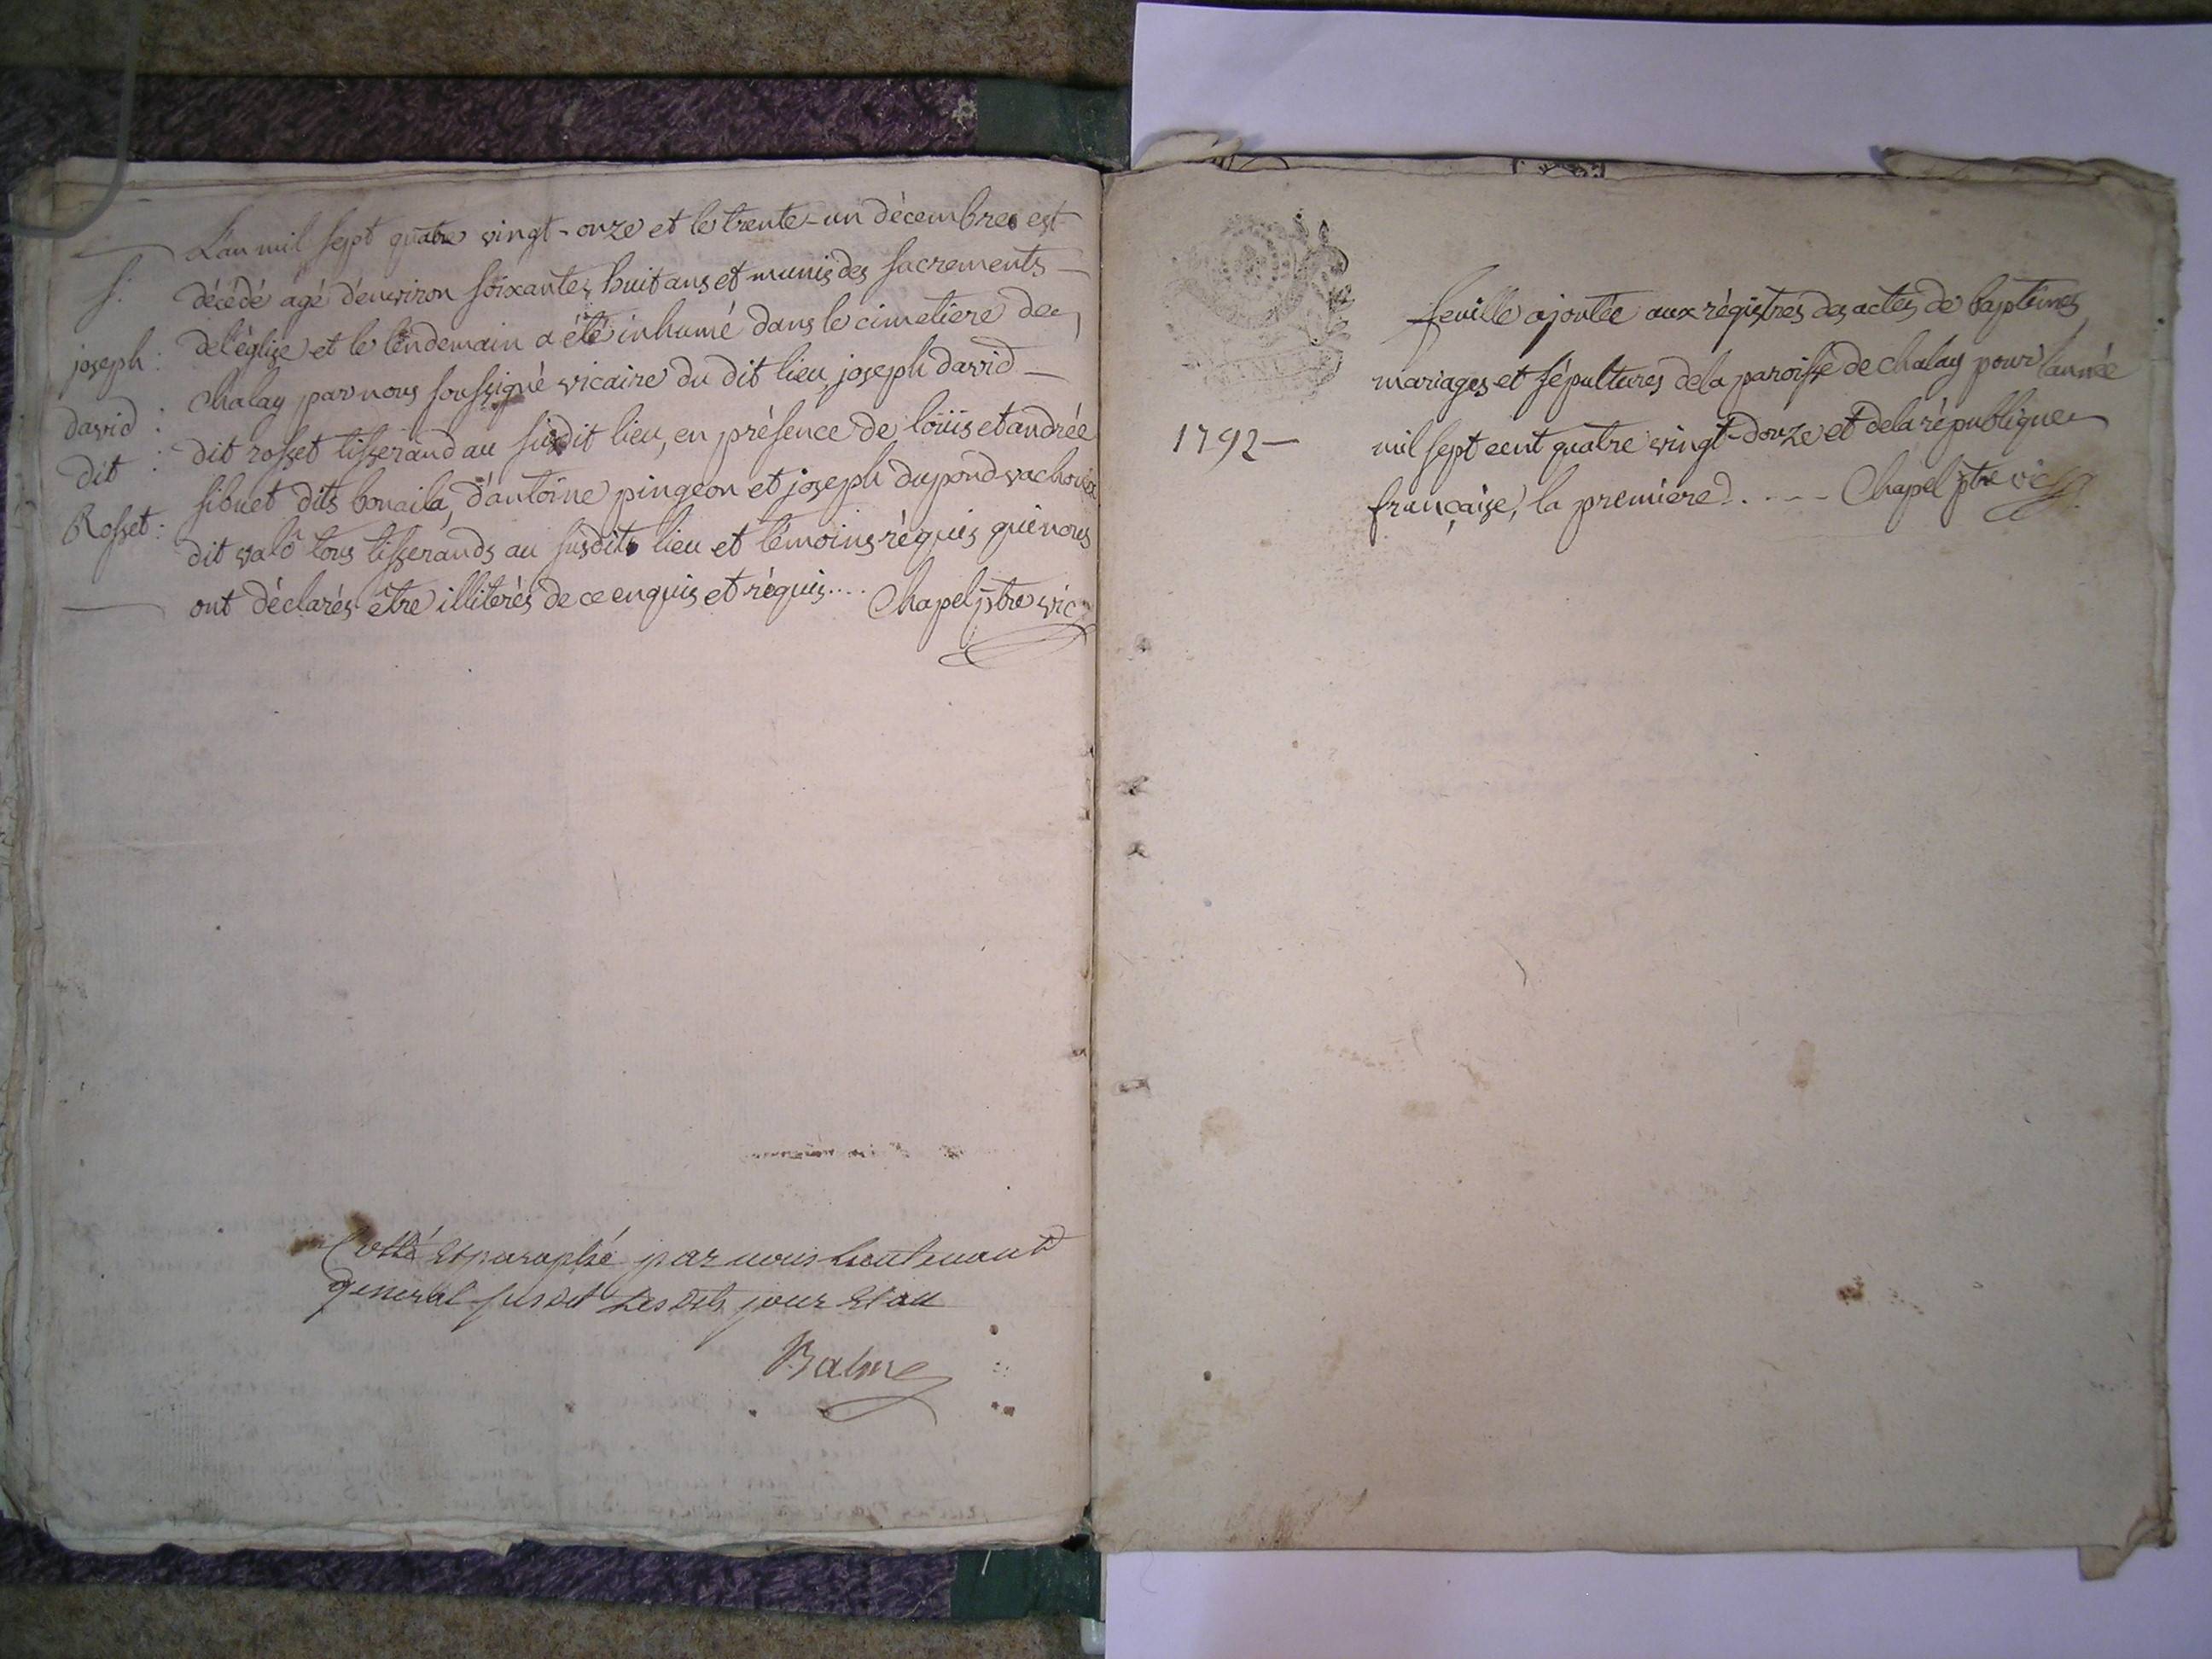 L'an mil sept quatre vingt-onze et le trente-un décembre est
décédé agé d'environ soixante, huit ans et munis des sacrements
de l'église et le lendemain a été inhumé dans le cimetiere de
chalay par nous soussigné vicaire du dit lieu joseph david
dit rosset tisserand au susdit lieu, en présence de loüis et andrée
sibuet dits bonaila, d'antoine pingeon et joseph dupond vachoux
dit valô tous tisserands au susdit lieu et témoins réquis qui nous
ont déclarés être illitérés de ce enquis et réquis.... Chapel ptre vic
S.
joseph :
david :
dit :
Rosset :
Cotté et paraphé par nous Lieutenant
general susdit Les dits jour et an
Balme
feuille ajoutée aux régistres des actes de baptêmes
mariages et sépultures de la paroisse de chalay pour l'année
1792 —
mil sept cent quatre vingt-douze et de la république
française, la premiere. . - - - Chapel ptre vic